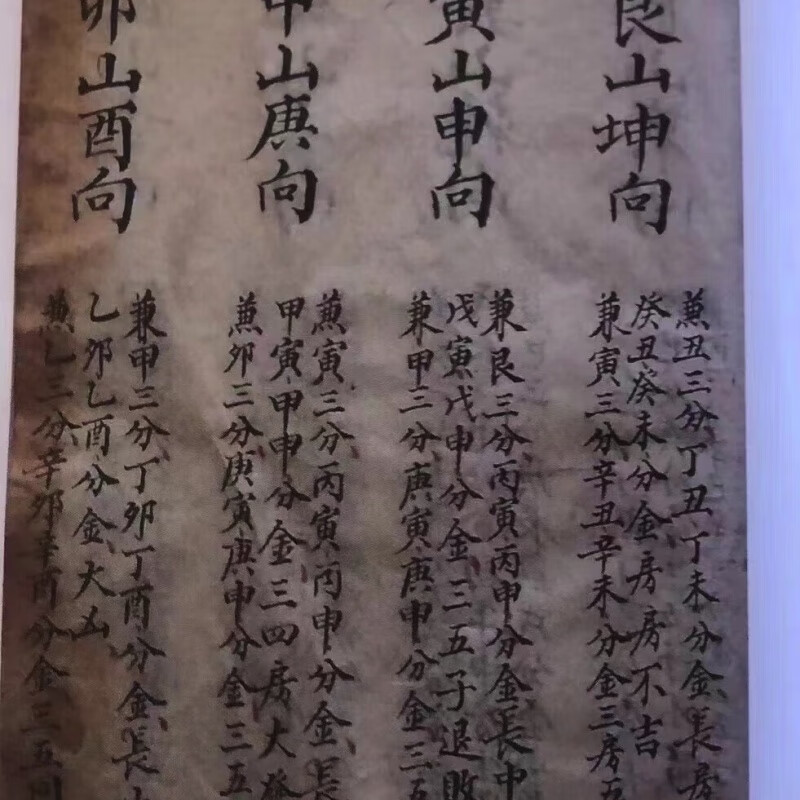 艮山坤向
兼丑三分丁丑丁未分金長房
癸丑癸未分金房房不吉
兼寅三分辛丑辛未分金三房五
寅山申向
兼艮三分丙寅丙申分金長中
戊寅戊申分金三五子退敗
兼甲三分庚寅庚申分金三五
甲山庚向
兼寅三分丙寅丙申分金長
甲寅甲申分金三四房大發
兼卯三分庚寅庚申分金三五
卯山酉向
兼甲三分丁卯丁酉分金長
乙卯乙酉分金大凶
兼乙三分辛卯辛酉分金三五同